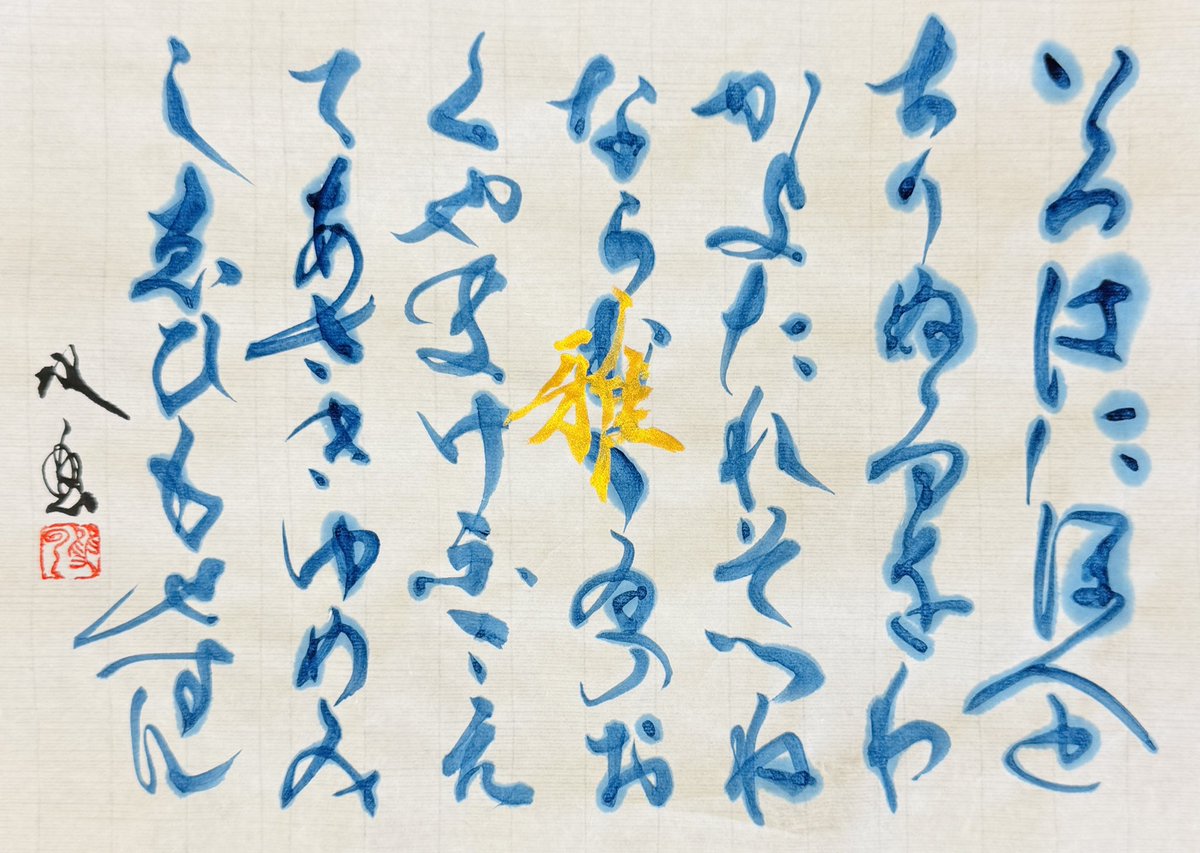 いろはにほへと
ちりぬるをわ
かよたれそつね
ならむうゐのお
くやまけふこえ
てあさきゆめみ
しゑひもせす
雅